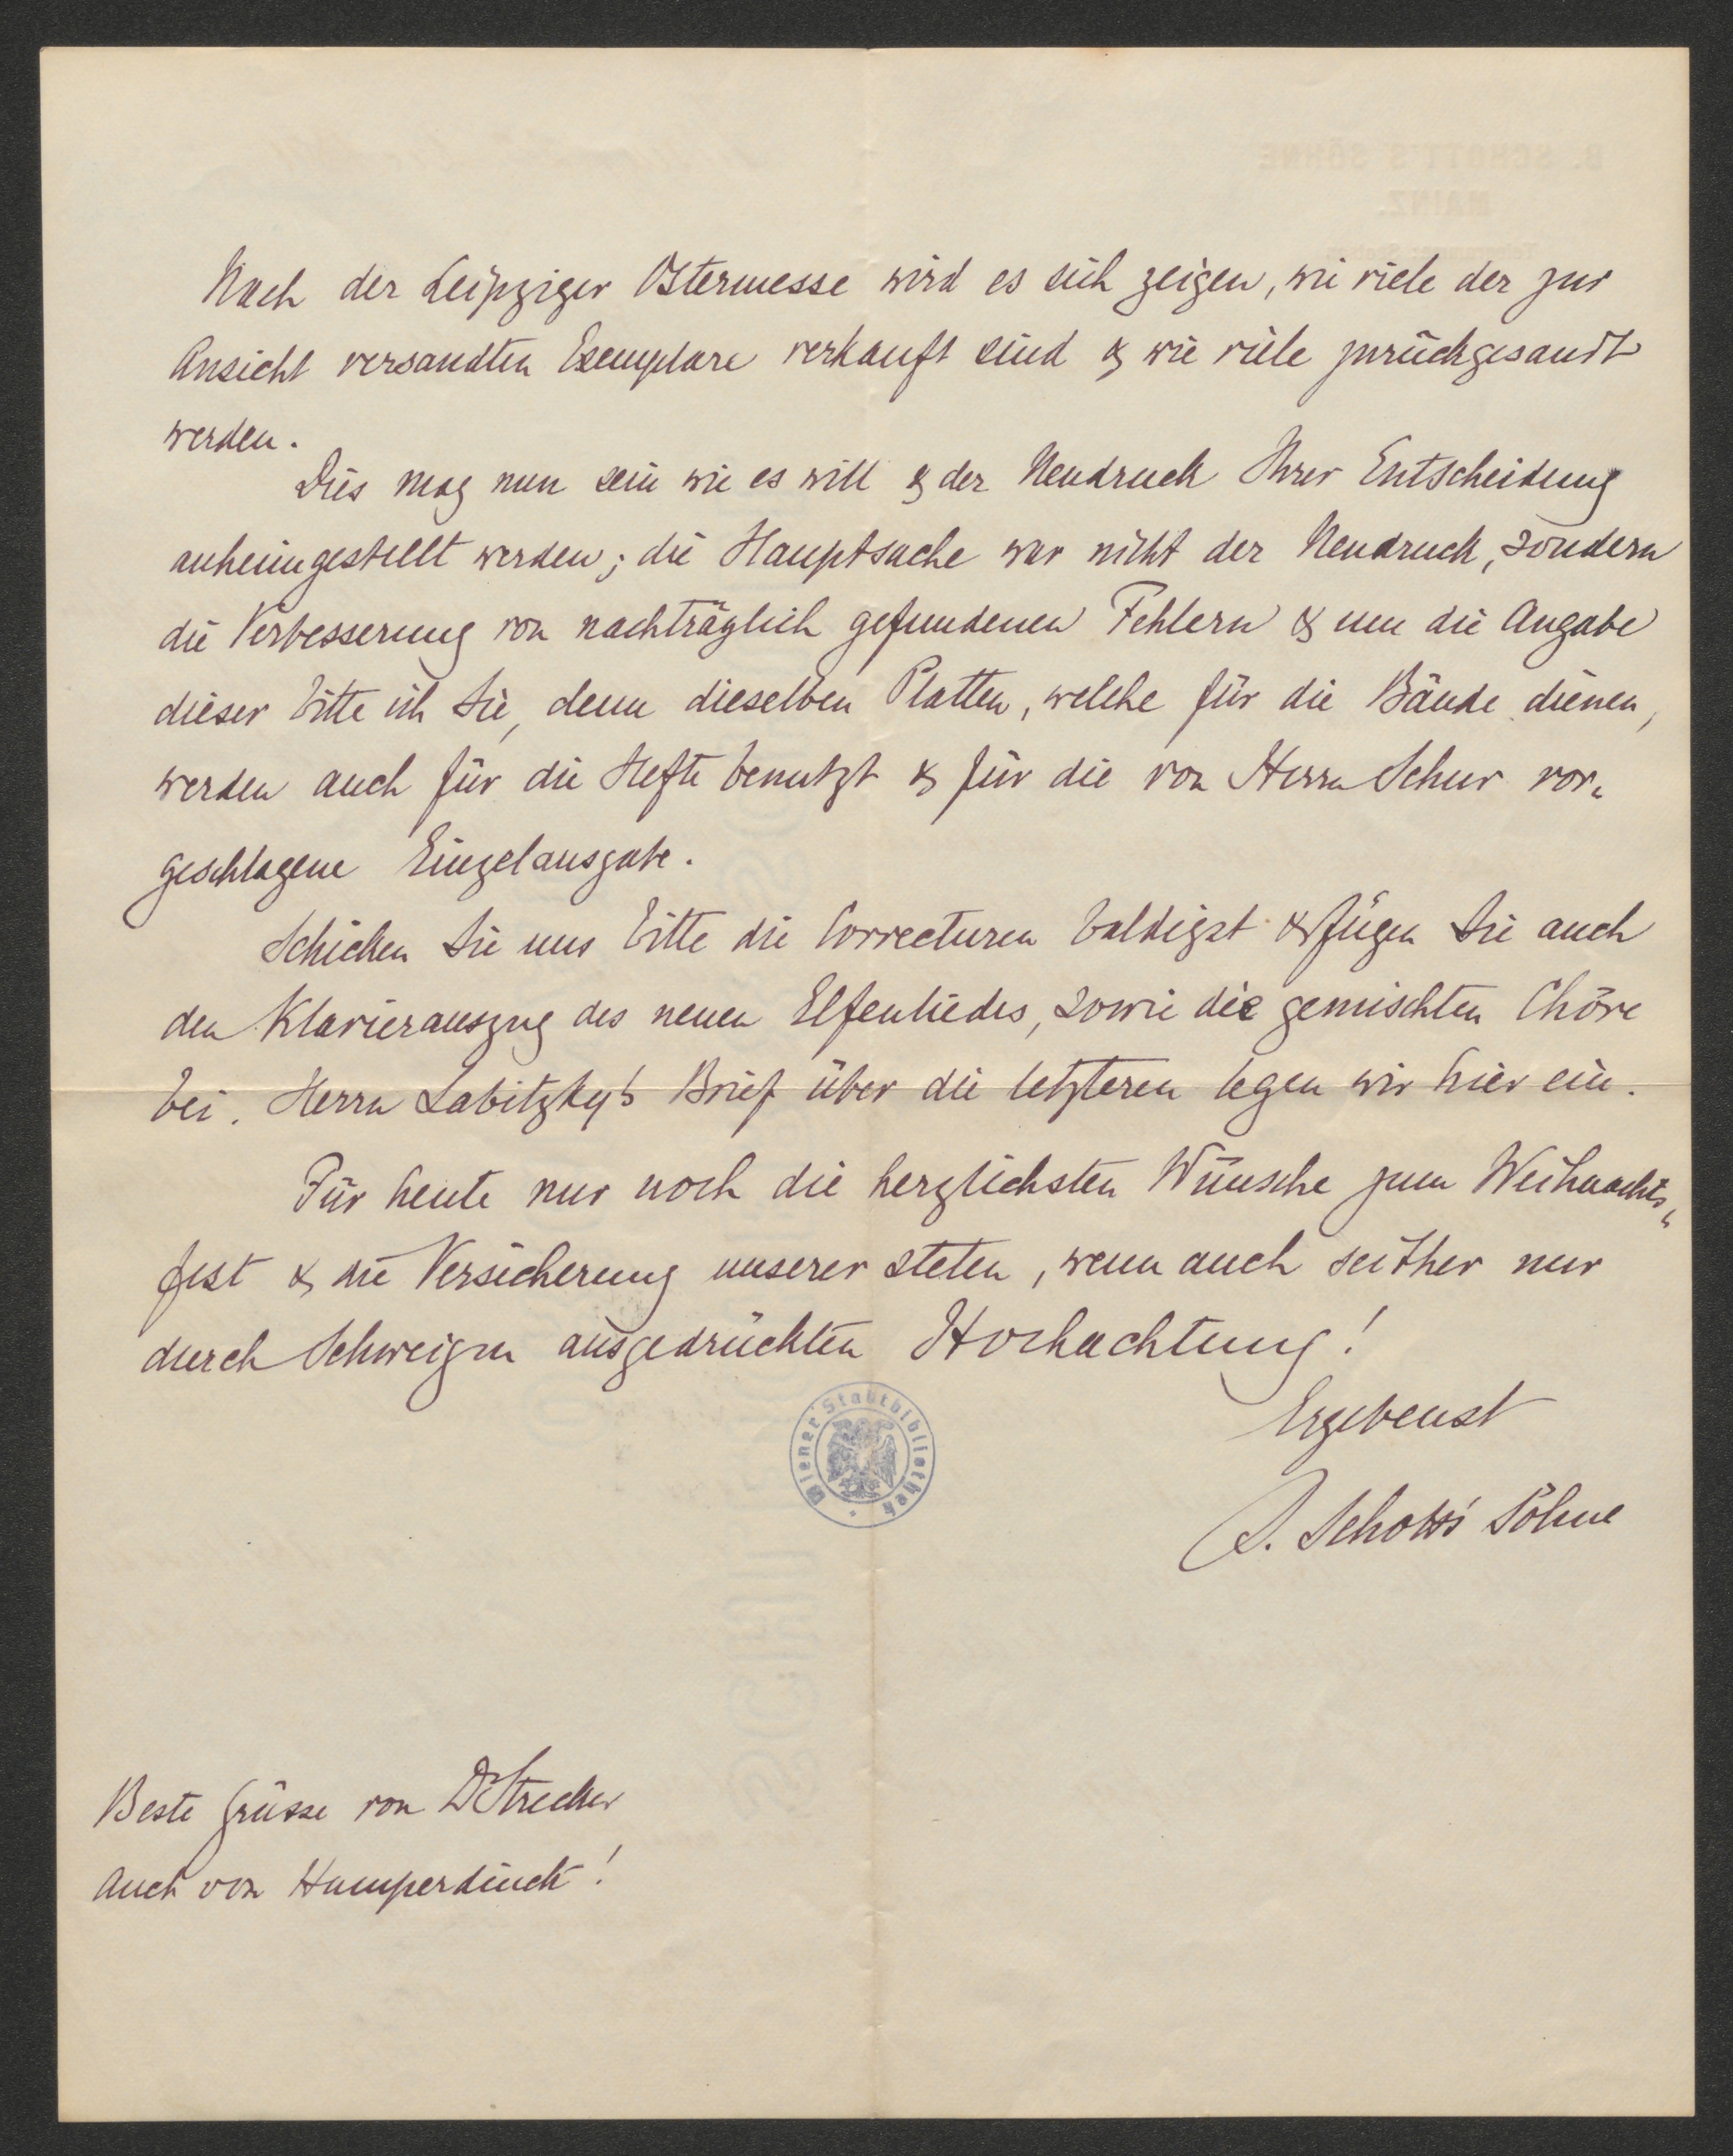 Nach der Leipziger Ostermesse wird es sich zeigen, wie viele der zur
Ansicht versandten Exemplare verkauft sind & wie viele zurückgesandt
werden.
Dies mag nun sein wie es will & der Neudruck Ihrer Entscheidung
anheimgestellt werden; die Hauptsache war nicht der Neudruck, sondern
die Verbesserung von nachträglich gefundenen Fehlern & um die Angabe
dieser bitte ich Sie, denn dieselben Platten, welche für die Bände dienen,
werden auch für die Hefte benutzt & für die von Herrn Schur vor„
geschlagene Einzelausgabe.
Schicken Sie uns bitte die Correcturen baldigst & fügen Sie auch
den Klavierauszug des neuen Elfenliedes, sowie die gemischten Chöre
bei. Herrn Labitzky's Brief über die letzteren legen wir hier ein.
Für heute nur noch die herzlichsten Wünsche zum Weihnachts„
fest & die Versicherung unserer steten, wenn auch seither nur
durch Schweigen ausgedrückten Hochachtung!
Ergebenst
B. Schott's Söhne
Wiener Stadtbibliothek
Beste Grüsse von Dr Strecker
auch von Humperdinck!